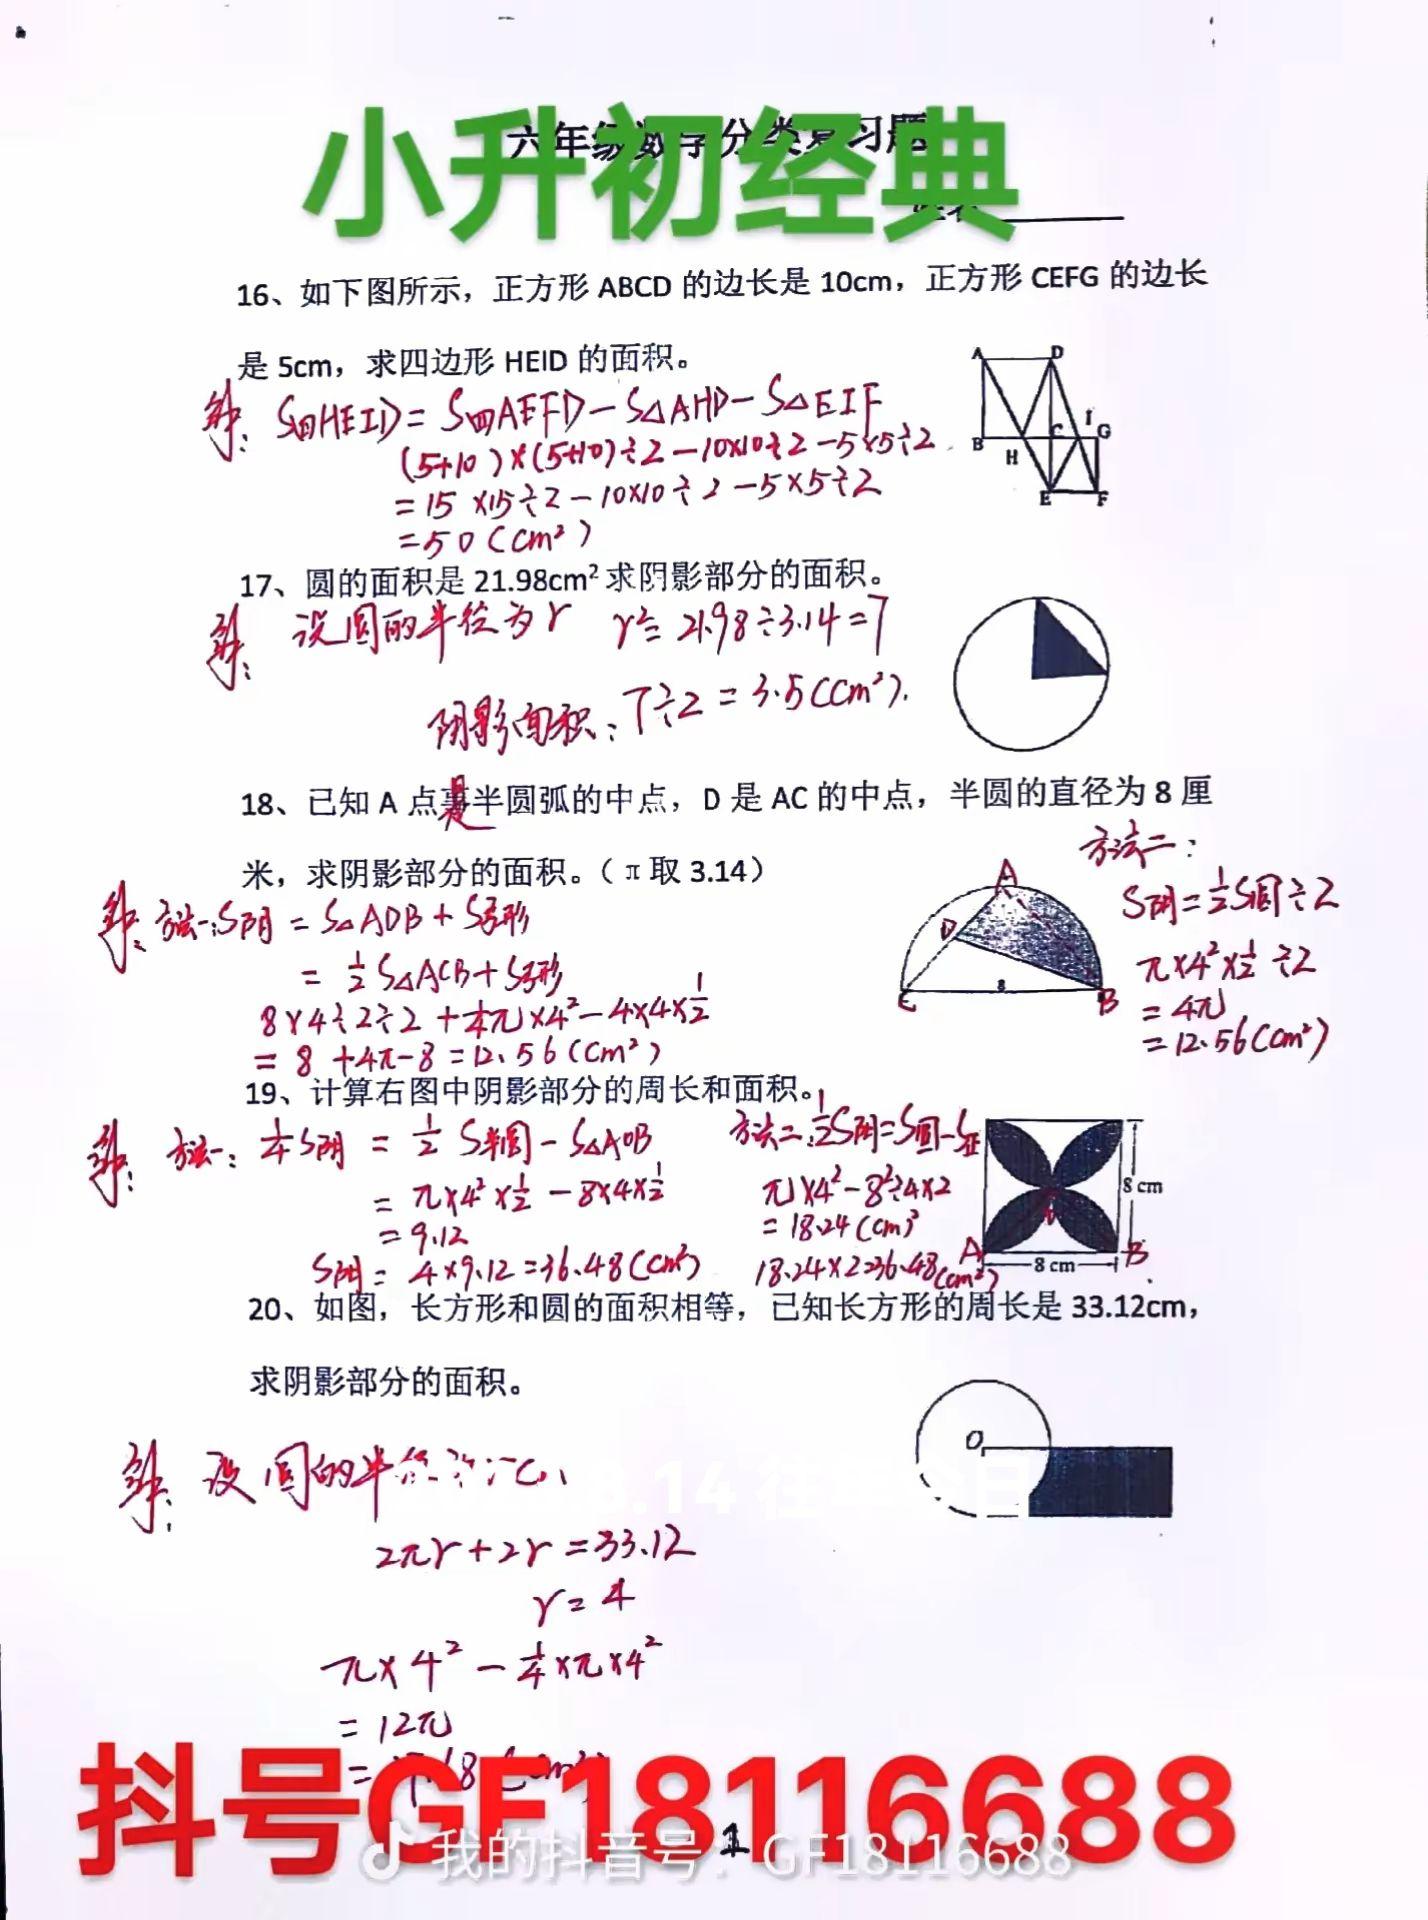 小升初经典
六年级数学分类复习题
16、如下图所示，正方形 ABCD 的边长是 10cm，正方形 CEFG 的边长
是 5cm，求四边形 HEID 的面积。
A D
B H C I G
E F
解： S四HEID = S四AEFD - S△AHD - S△EIF
(5+10)×(5+10)÷2 - 10×10÷2 - 5×5÷2
= 15×15÷2 - 10×10÷2 - 5×5÷2
= 50 (cm²)
17、圆的面积是 21.98cm² 求阴影部分的面积。
解： 设圆的半径为r r² = 21.98÷3.14=7
阴影面积： 7÷2 = 3.5(cm²).
18、已知 A 点是半圆弧的中点，D 是 AC 的中点，半圆的直径为 8 厘
米，求阴影部分的面积。（π取 3.14）
解： 方法一：S阴 = S△ADB + S弓形
= ½ S△ACB + S弓形
8×4÷2÷2 + ¼π×4² - 4×4×½
= 8 + 4π - 8 = 12.56 (cm²)
A
D
C 8 B
方法二：
S阴 = ½S圆÷2
π×4²×½÷2
= 4π
= 12.56 (cm²)
19、计算右图中阴影部分的周长和面积。
解： 方法一： ¼S阴 = ½ S半圆 - S△AOB
= π×4²×½ - 8×4×½
= 9.12
S阴 = 4×9.12 = 36.48 (cm²)
方法二：½S阴 = S圆 - S正
π×4² - 8²÷4×2
= 18.24 (cm)²
18.24×2=36.48(cm²)
8 cm
A B
8 cm
20、如图，长方形和圆的面积相等，已知长方形的周长是 33.12cm，
求阴影部分的面积。
O
解： 设圆的半径
2πr + 2r = 33.12
r = 4
π×4² - ¼×π×4²
= 12π
抖号GF18116688
1
我的抖音号：GF18116688